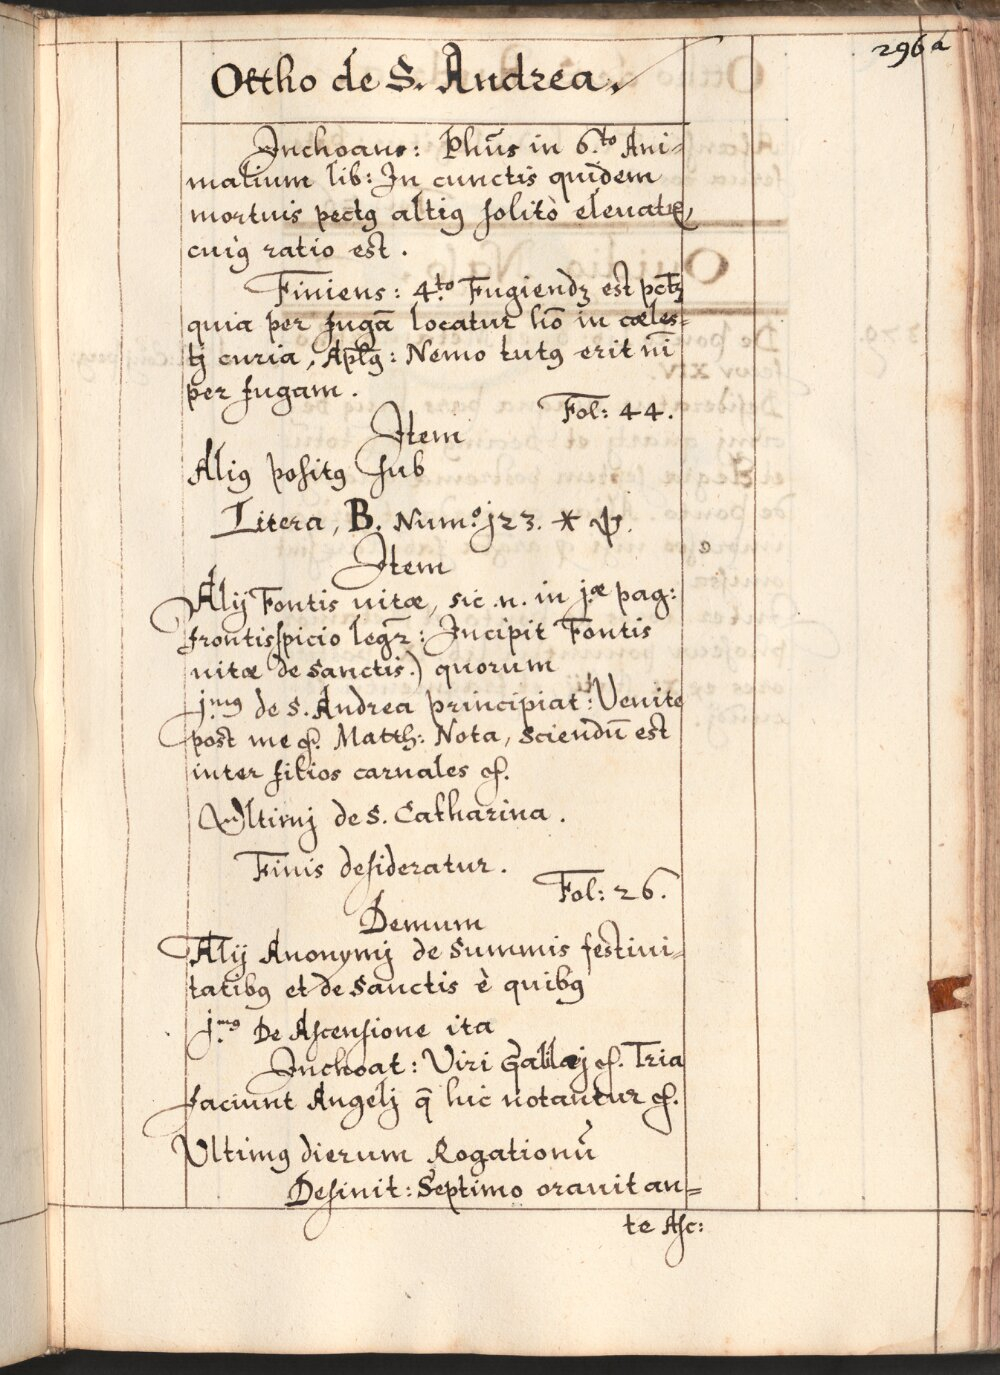 296a
Ottho de S. Andrea.
Inchoans: Phûs in 6.to Ani-
malium lib: In cunctis quidem
mortuis pectꝰ altiꝰ solitò eleuatur,
cuiꝰ ratio est.
Finiens: 4.to Fugiendꝫ est pctꝫ
quia per fugā locatur hō in cæles-
tj curia, Aplꝰ: Nemo tutꝰ erit nī
per fugam.
Fol: 44.
Item
Aliꝰ positꝰ sub
Litera, B. Num.o j23. * ψ.
Item
Alij Fontis uitæ, sic .n. in j.æ pag:
frontispicio legr̄: Incipit Fontis
uitæ de Sanctis.) quorum
j.mꝰ de S. Andrea principiat: Venite
post me &. Matth: Nota, Sciendū est
inter filios carnales &.
Ultimj de S. Catharina.
Finis desideratur.
Fol: 26.
Demum
Alij Anonymj de Summis festiui-
tatibꝰ et de Sanctis è quibꝰ
j.mꝰ De Ascensione ita
Inchoat: Viri Galilæj &. Tria
faciunt Angelj q̄ hic notantur &.
Ultimꝰ dierum Rogationū
Desinit: Septimo orauit an=
te Asc: